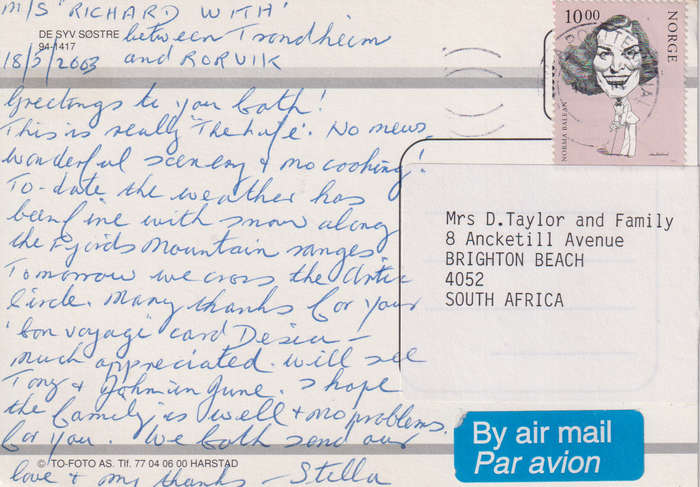 M/S 'RICHARD WITH'
between Trondheim
and RORVIK
18/5/2003
DE SYV SØSTRE
94-1417
Greetings to you both!
This is really "The Life". No news,
wonderful scenery & no cooking!
To-date the weather has
been fine with snow along
the Fjords Mountain ranges
Tomorrow we cross the Artic
Circle. Many thanks for your
'bon voyage' card Desia –
much appreciated. Will see
Tony & John in June. I hope
the family is well & no problems
for you. We both send our
love & my thanks – Stella
© TO-FOTO AS. Tlf. 77 04 06 00 HARSTAD
10.00
NORGE
NORMA BALEAN
Mrs D.Taylor and Family
8 Ancketill Avenue
BRIGHTON BEACH
4052
SOUTH AFRICA
By air mail
Par avion